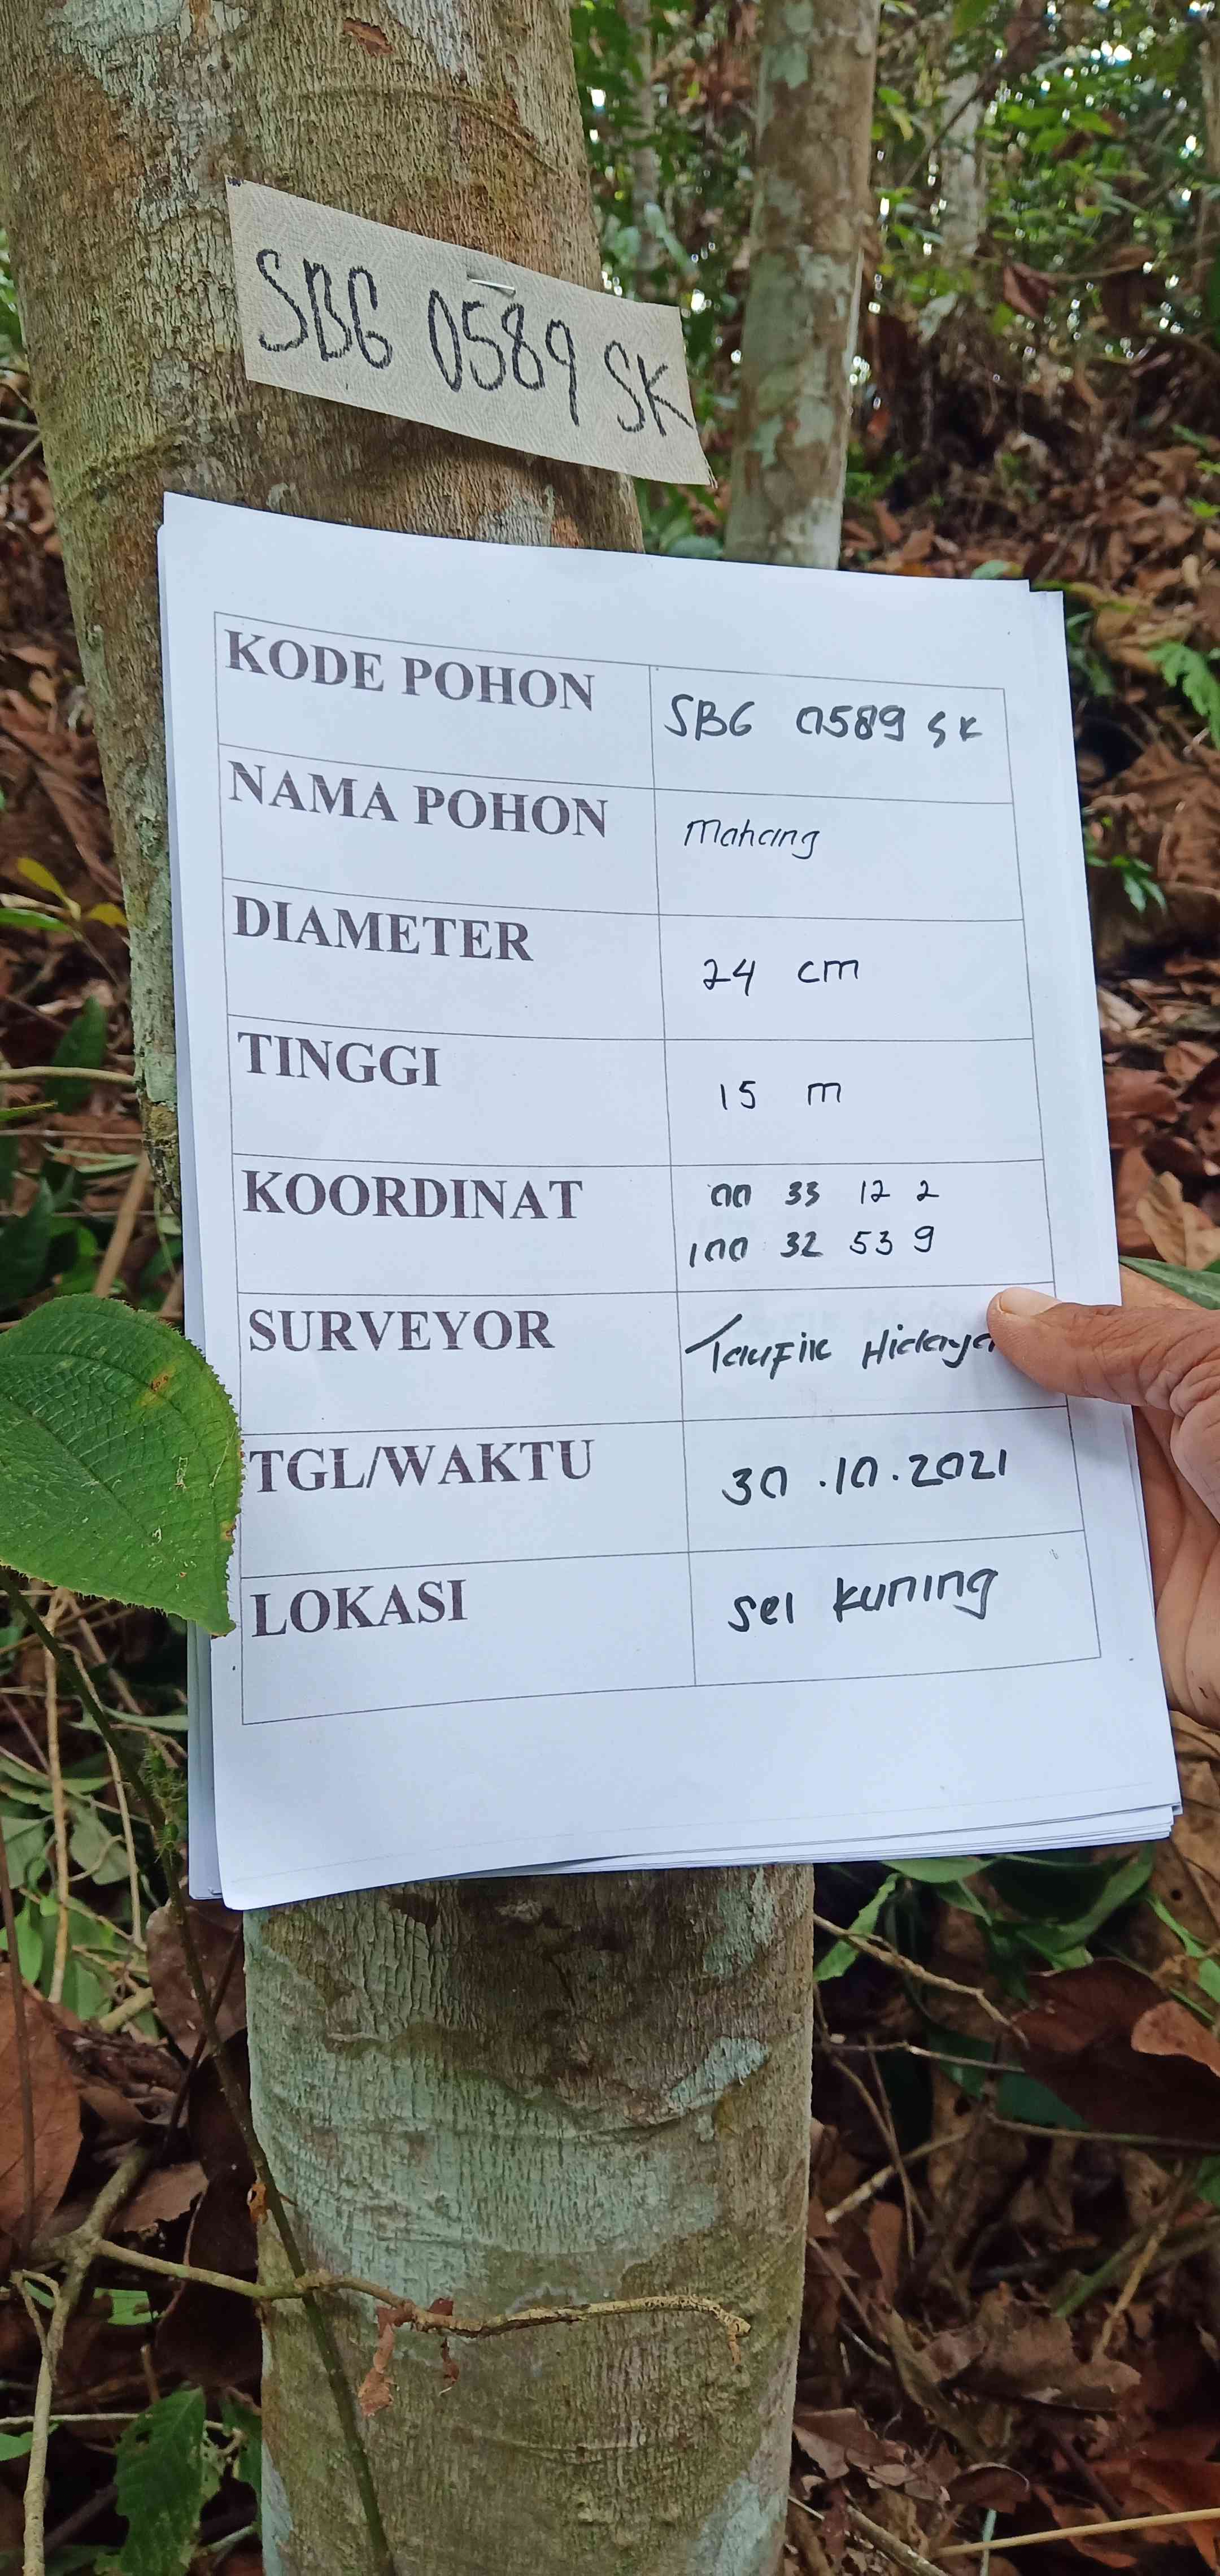 SBG 0589 SK
KODE POHON SBG 0589 SK
NAMA POHON Mahang
DIAMETER 24 cm
TINGGI 15 m
KOORDINAT 00 33 12 2
100 32 53 9
SURVEYOR Taufik
TGL/WAKTU 30.10.2021
LOKASI Sei Kuning